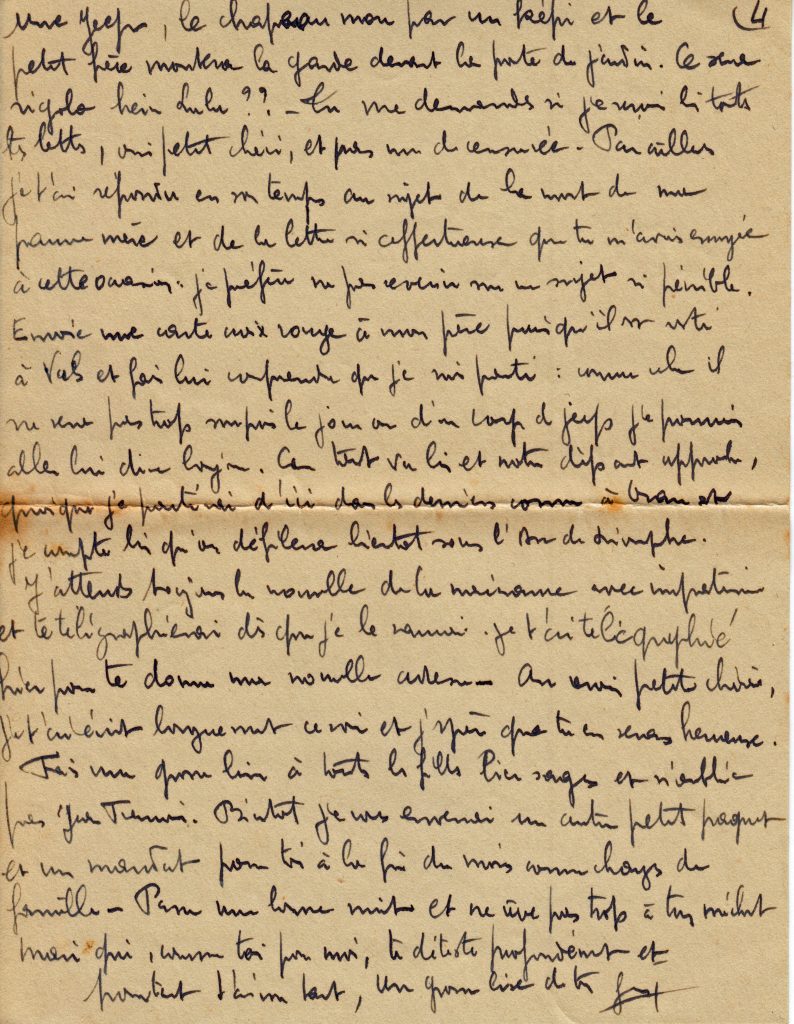 4
une Jeep, le chapeau mou par un képi et le
petit frère montera la garde devant la porte du jardin. Ce sera
rigolo hein Lulu ?? - Tu me demandes si je reçois ici toutes
tes lettres, oui petit chéri, et pas une de censurée - Par ailleurs
je t'ai répondu en son temps au sujet de la mort de ma
pauvre mère et de la lettre si affectueuse que tu m'avais envoyée
à cette occasion : je préfère ne pas revenir sur un sujet si pénible.
Envoie une carte croix rouge à mon père puisqu'il est resté
à Vals et fais lui comprendre que je suis parti : comme cela il
ne sera pas trop surpris le jour où d'un coup de jeep je pourrais
aller lui dire bonjour. Car tout va bien et notre départ approche,
quoique je partirai d'ici dans les derniers comme à Oran et
je compte bien qu'on défilera bientôt sous l'Arc de triomphe.
J'attends toujours la nouvelle de la naissance avec impatience
et te télégraphierai dès que je le saurai. Je t'ai télégraphié
hier pour te donner ma nouvelle adresse - Au revoir petite chérie,
je t'ai écrit longuement ce soir et j'espère que tu en seras heureuse.
Fais une grosse bise à toutes les filles bien sages et n'oublie
pas Jean. Bientôt je vous enverrai un autre petit paquet
et un mandat pour toi à la fin du mois comme charges de
famille - Passe une bonne nuit et ne rêve pas trop à ton méchant
mari qui, comme toi pour moi, te déteste profondément et
pourtant t'aime tant, Une grosse bise de ton